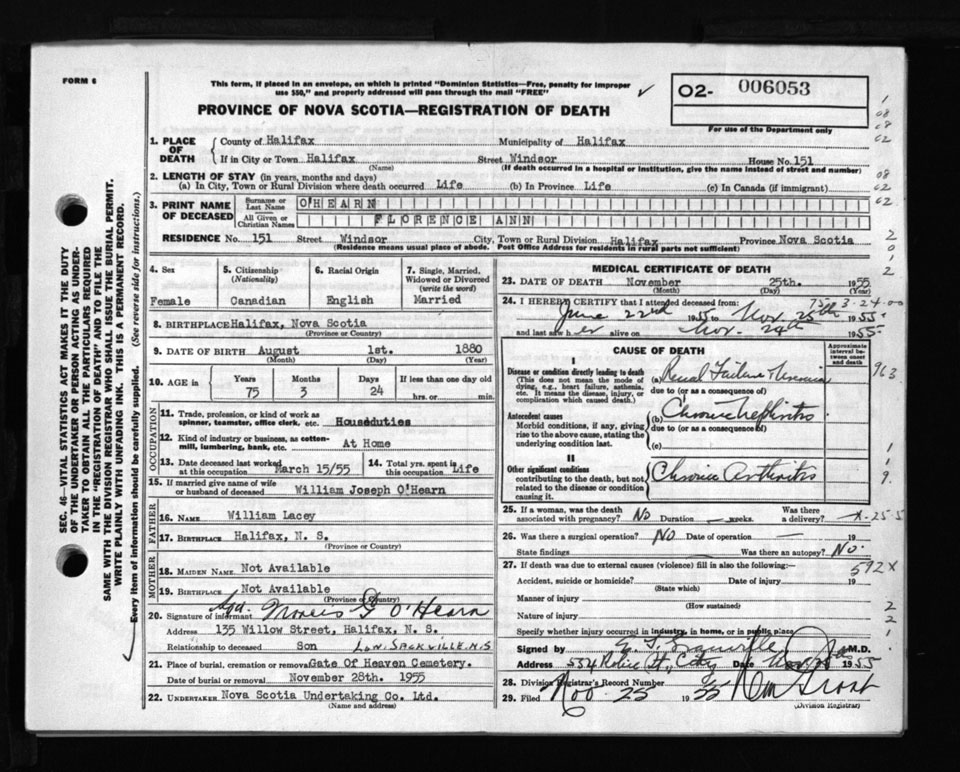 FORM 6
This form, if placed in an envelope, on which is printed "Dominion Statistics—Free, penalty for improper
use $50," and properly addressed will pass through the mail "FREE"
PROVINCE OF NOVA SCOTIA—REGISTRATION OF DEATH
O2- 006053
For use of the Department only
SEC. 46—VITAL STATISTICS ACT MAKES IT THE DUTY
OF THE UNDERTAKER OR PERSON ACTING AS UNDER-
TAKER TO OBTAIN ALL THE PARTICULARS REQUIRED
IN THE "REGISTRATION OF DEATH" AND TO FILE THE
SAME WITH THE DIVISION REGISTRAR WHO SHALL ISSUE THE BURIAL PERMIT.
WRITE PLAINLY WITH UNFADING INK. THIS IS A PERMANENT RECORD.
Every item of information should be carefully supplied. (See reverse side for instructions.)
1. PLACE OF DEATH
County of Halifax Municipality of Halifax
If in City or Town Halifax Street Windsor House No. 151
(Name) (If death occurred in a hospital or institution, give the name instead of street and number)
2. LENGTH OF STAY (in years, months and days)
(a) In City, Town or Rural Division where death occurred Life (b) In Province Life (c) In Canada (if immigrant)
3. PRINT NAME OF DECEASED
Surname or Last Name O'HEARN
All Given or Christian Names FLORENCE ANN
RESIDENCE No. 151 Street Windsor City, Town or Rural Division Halifax Province Nova Scotia
(Residence means usual place of abode. Post Office Address for residents in rural parts not sufficient)
4. Sex
Female
5. Citizenship (Nationality)
Canadian
6. Racial Origin
English
7. Single, Married, Widowed or Divorced (write the word)
Married
8. BIRTHPLACE Halifax, Nova Scotia
(Province or Country)
9. DATE OF BIRTH August 1st. 1880
(Month) (Day) (Year)
10. AGE in Years Months Days If less than one day old
75 3 24 hrs. or min.
OCCUPATION
11. Trade, profession, or kind of work as
spinner, teamster, office clerk, etc. Houseduties
12. Kind of industry or business, as cotton-
mill, lumbering, bank, etc. At Home
13. Date deceased last worked at this occupation March 15/55
14. Total yrs. spent in this occupation Life
15. If married give name of wife
or husband of deceased William Joseph O'Hearn
FATHER
16. NAME William Lacey
17. BIRTHPLACE Halifax, N. S.
(Province or Country)
MOTHER
18. MAIDEN NAME Not Available
19. BIRTHPLACE Not Available
(Province or Country)
20. Signature of informant Sgd. G O'Hearn
Address 135 Willow Street, Halifax, N. S.
Relationship to deceased Son SACKVILLE N.S
21. Place of burial, cremation or removal Gate Of Heaven Cemetery.
Date of burial or removal November 28th. 1955
22. UNDERTAKER Nova Scotia Undertaking Co. Ltd.
(Name and address)
MEDICAL CERTIFICATE OF DEATH
23. DATE OF DEATH November 25th. 1955
(Month) (Day) (Year)
24. I HEREBY CERTIFY that I attended deceased from:
June 22nd 1955 to Nov. 25th 1955
and last saw her alive on Nov. 24th 1955
CAUSE OF DEATH
Approximate interval between onset and death
I
Disease or condition directly leading to death
(This does not mean the mode of
dying, e.g., heart failure, asthenia,
etc. It means the disease, injury, or
complication which caused death.)
(a) Renal Failure
due to (or as a consequence of)
Antecedent causes
Morbid conditions, if any, giving
rise to the above cause, stating the
underlying condition last.
(b) Chronic Nephritis
due to (or as a consequence of)
(c)
II
Other significant conditions
contributing to the death, but not
related to the disease or condition
causing it.
Chronic Arthritis
25. If a woman, was the death
associated with pregnancy? No Duration — weeks. Was there a delivery?
26. Was there a surgical operation? No Date of operation — 19
State findings Was there an autopsy? No.
27. If death was due to external causes (violence) fill in also the following:—
592X
Accident, suicide or homicide? Date of injury 19
(State which)
Manner of injury
(How sustained)
Nature of injury
Specify whether injury occurred in industry, in home, or in public place
Signed by M.D.
Address 534 Robie St, City Date Nov 25 1955
28. Division Registrar's Record Number
29. Filed Nov 25 1955
(Division Registrar)